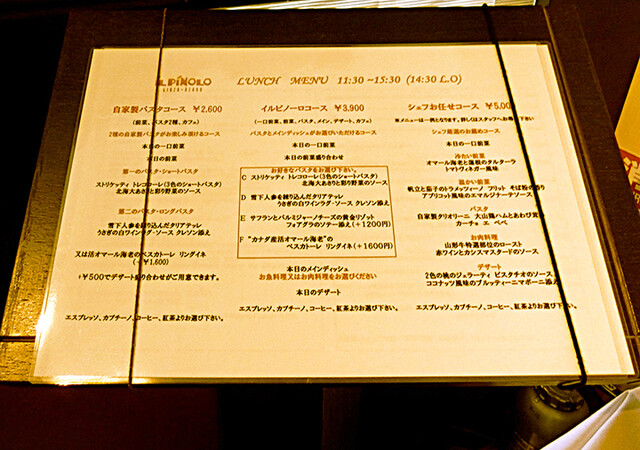 IL PINOLO
GINZA
LUNCH MENU 11:30 ~15:30 (14:30 L.O)
自家製パスタコース ¥2.600
(前菜、パスタ2種、カフェ)
2種の自家製パスタがお楽しみ頂けるコース
本日の一口前菜
本日の前菜
第一のパスタ・ショートパスタ
ストリケッティ トレコローレ(3色のショートパスタ)
北海大あさりと彩り野菜のソース
第二のパスタ・ロングパスタ
雪下人参を練り込んだタリアテッレ
うさぎの白ワインソース クレソン添え
又は活オマール海老のペスカトーレ リングイネ
(¥1,600)
¥500でデザート盛り合わせがご用意できます。
エスプレッソ、カプチーノ、コーヒー、紅茶よりお選び下さい。
イルピノーロコース ¥3,900
(一口前菜、前菜、パスタ、メイン、デザート、カフェ)
パスタとメインディッシュがお選びいただけるコース
本日の一口前菜
本日の前菜盛り合わせ
お好きなパスタをお選び下さい。
C ストリケッティ トレコローレ(3色のショートパスタ)
北海大あさりと彩り野菜のソース
D 雪下人参を練り込んだタリアテッレ
うさぎの白ワイン・ソース クレソン添え
E サフランとパルミジャーノチーズの黄金リゾット
フォアグラのソテー添え (+1200円)
F "カナダ産活オマール海老"の
ペスカトーレ リングイネ (+1600円)
本日のメインディッシュ
お魚料理又はお肉料理をお選びください
本日のデザート
エスプレッソ、カプチーノ、コーヒー、紅茶よりお選び下さい。
シェフお任せコース ¥5,00
※メニューは一例となります。詳しくはスタッフへお尋ね下さい
シェフ厳選のお薦めコース
本日の一口前菜
冷たい前菜
オマール海老と蓮根のタルターラ
トマトヴィネガー風味
温かい前菜
帆立と茄子のトラメッツィーノ フリット そば粉の香り
アプリコット風味のエマルジョナーテソース
パスタ
自家製タリオリーニ 大山鶏ハムとあわび茸
カーチョ エ ペペ
お肉料理
山形牛特選部位のロースト
赤ワインとカシスマスタードのソース
デザート
2色の桃のジェラーティ ピスタチオのソース
ココナッツ風味のブルッティーニマボーニ添え
エスプレッソ、カプチーノ、コーヒー、紅茶よりお選び下さい。